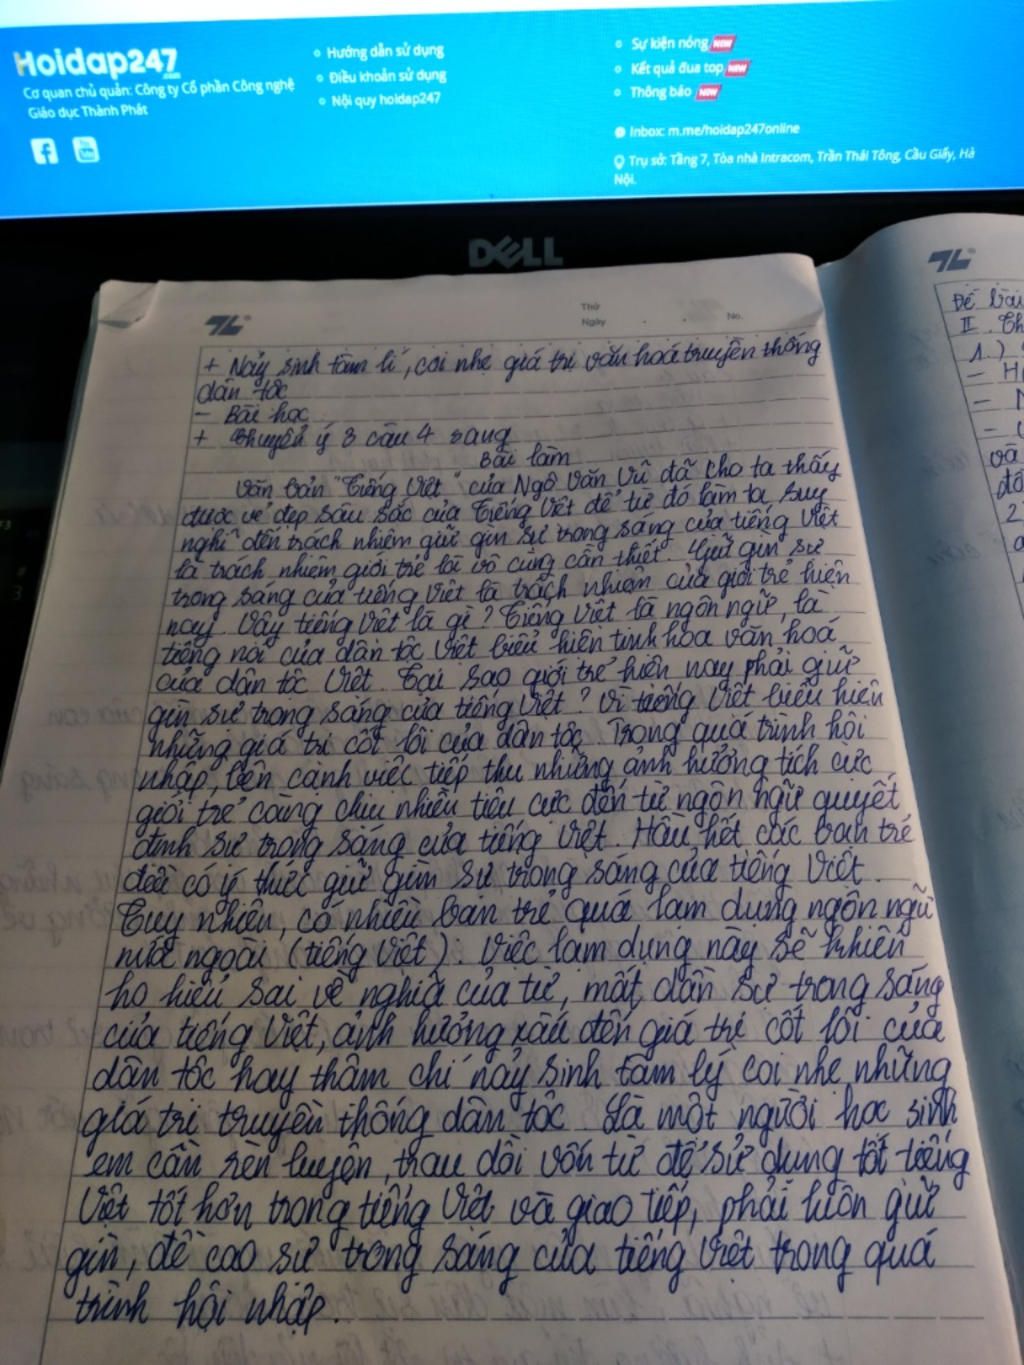 Hoidap247
.com
Cơ quan chủ quản: Công ty Cổ phần Công nghệ
Giáo dục Thành Phát
Hướng dẫn sử dụng
Điều khoản sử dụng
Nội quy hoidap247
Sự kiện nóng NEW
Kết quả đua top NEW
Thông báo NEW
Inbox: m.me/hoidap247online
Trụ sở: Tầng 7, Tòa nhà Intracom, Trần Thái Tông, Cầu Giấy, Hà
Nội.
DELL
Thứ
Ngày . . No.
+ Nảy sinh tâm lí, coi nhẹ giá trị văn hoá truyền thống
dân tộc
- Bài học
+ Chuyển ý 3 câu 4 sang
Bài làm
Văn bản "Tiếng Việt" của Ngô Văn Vũ đã cho ta thấy
được vẻ đẹp sâu sắc của Tiếng Việt để từ đó làm ta suy
nghĩ đến trách nhiệm giữ gìn sự trong sáng của tiếng Việt
là trách nhiệm giới trẻ là vô cùng cần thiết. Giữ gìn sự
trong sáng của tiếng Việt là trách nhiệm của giới trẻ hiện
nay. Vậy tiếng Việt là gì? Tiếng Việt là ngôn ngữ, là
tiếng nói của dân tộc Việt biểu hiện tinh hoa văn hoá
của dân tộc Việt. Tại sao giới trẻ hiện nay phải giữ
gìn sự trong sáng của tiếng Việt? Vì tiếng Việt biểu hiện
những giá trị cốt lõi của dân tộc. Trong quá trình hội
nhập, bên cạnh việc tiếp thu những ảnh hưởng tích cực
giới trẻ càng chịu nhiều tiêu cực đến từ ngôn ngữ quyết
định sự trong sáng của tiếng Việt. Hầu hết các bạn trẻ
đều có ý thức giữ gìn sự trong sáng của tiếng Việt.
Tuy nhiên, có nhiều bạn trẻ quá lạm dụng ngôn ngữ
nước ngoài (tiếng Việt). Việc lạm dụng này sẽ khiến
họ hiểu sai về nghĩa của từ, mất dần sự trong sáng
của tiếng Việt, ảnh hưởng xấu đến giá trị cốt lõi của
dân tộc hay thậm chí nảy sinh tâm lý coi nhẹ những
giá trị truyền thống dân tộc. Là một người học sinh
em cần rèn luyện, trau dồi vốn từ để sử dụng tốt tiếng
Việt tốt hơn trong tiếng Việt và giao tiếp, phải luôn giữ
gìn, đề cao sự trong sáng của tiếng Việt trong quá
trình hội nhập.
Đề bài
II.
1.)